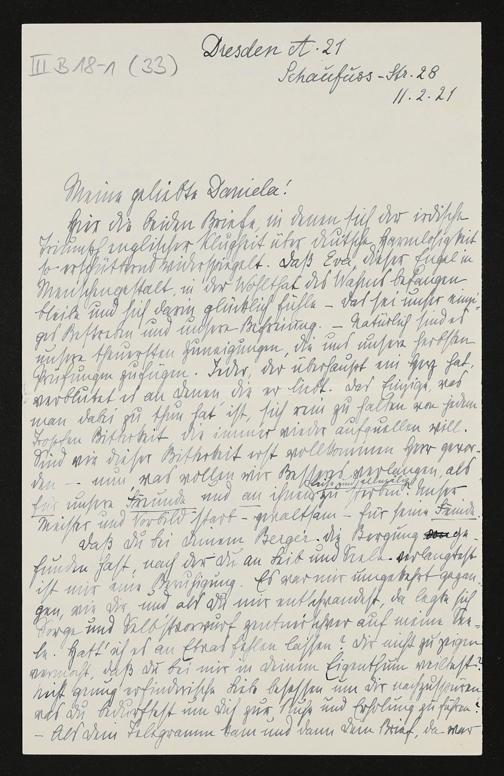 III B 18-1 (33)
Dresden A. 21
Schaufuss-Str. 28
11.2.21
Meine geliebte Daniela!
Hier die beiden Briefe, in denen sich der irdische
Triumph englischer Klugheit über deutsche Harmlosigkeit
so erschütternd widerspiegelt. Daß Eva, dieser Engel in
Menschengestalt, in der Wohlthat des Wahns befangen
bleibe und sich darin glücklich fühle – das sei unser einzi-
ges Bestreben und unsere Befreiung. – Natürlich sind es
unsere theuersten Zuneigungen, die uns unsere herbsten
Prüfungen zufügen. Jeder, der überhaupt ein Herz hat,
verblutet es an denen die er liebt. Das Einzige, was
man dabei zu thun hat ist, sich rein zu halten von jedem
Tropfen Bitterkeit die immer wieder aufquellen will.
Sind wir dieser Bitterkeit erst vollkommen Herr gewor-
den – nun was wollen wir Besseres verlangen, als
für unsere Freunde und an ihnen zu sterben. Unser
Meister und Vorbild starb – gewaltsam – für seine Feinde.
Daß du bei deinem Berger die Bergung ge-
funden hast, nach der du an Leib und Seele verlangtest
ist mir eine Beruhigung. Es war mir umgekehrt gegan-
gen, wie Dir, und als du mir entschwandest, da legte sich
Sorge und Selbstvorwurf zentnerschwer auf meine See-
le. Hatt' ich es an Etwas fehlen lassen? Dir nicht zu zeigen
vermocht, daß du bei mir in deinem Eigenthum weiltest?
Nicht genug erfinderische Liebe besessen um dir nachzuspüren
was du bedurftest um dich zur Ruhe und Erholung zu führen?
– Als dein Telegramm kam und dann dein Brief, da war